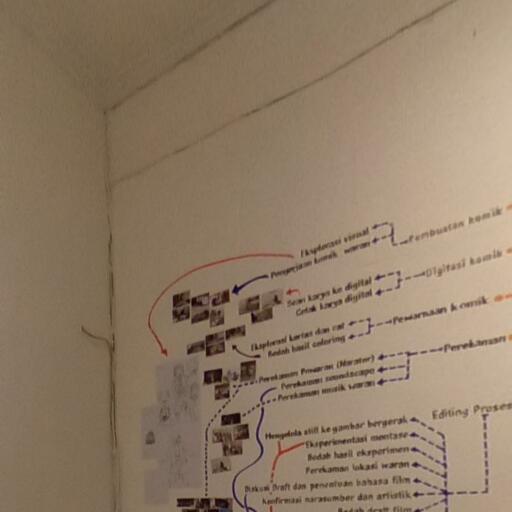 Eksplorasi visual
Pengerjaan komik waran
Pembuatan komik
Scan karya ke digital
Cetak karya digital
Digitasi komik
Eksplorasi kertas dan cat
Bedah hasil coloring
Pewarnaan komik
Perekaman Pewaran (Narator)
Perekaman soundscape
Perekaman musik waran
Perekaman
Editing Proses
Mengelola still ke gambar bergerak
Eksperimentasi montase
Bedah hasil eksperimen
Perekaman lokasi waran
Diskusi Draft dan penentuan bahasa film
Konfirmasi narasumber dan artistik
Bedah draft film